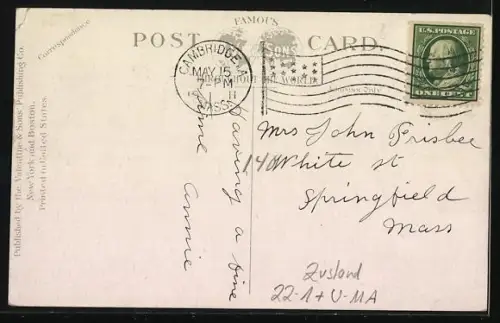 FAMOUS
POST CARD.
SONS
Correspondence
CAMBRIDGE
MAY 15
7-PM
11
MASS
U.S. POSTAGE
ONE CENT
Published by the Valentine & Sons' Publishing Co.
New York and Boston.
Printed in United States.
Having a fine
time
Annie
Mrs John Frisbee
14 White st
Springfield
Mass
Zustand
22-1+U-MA